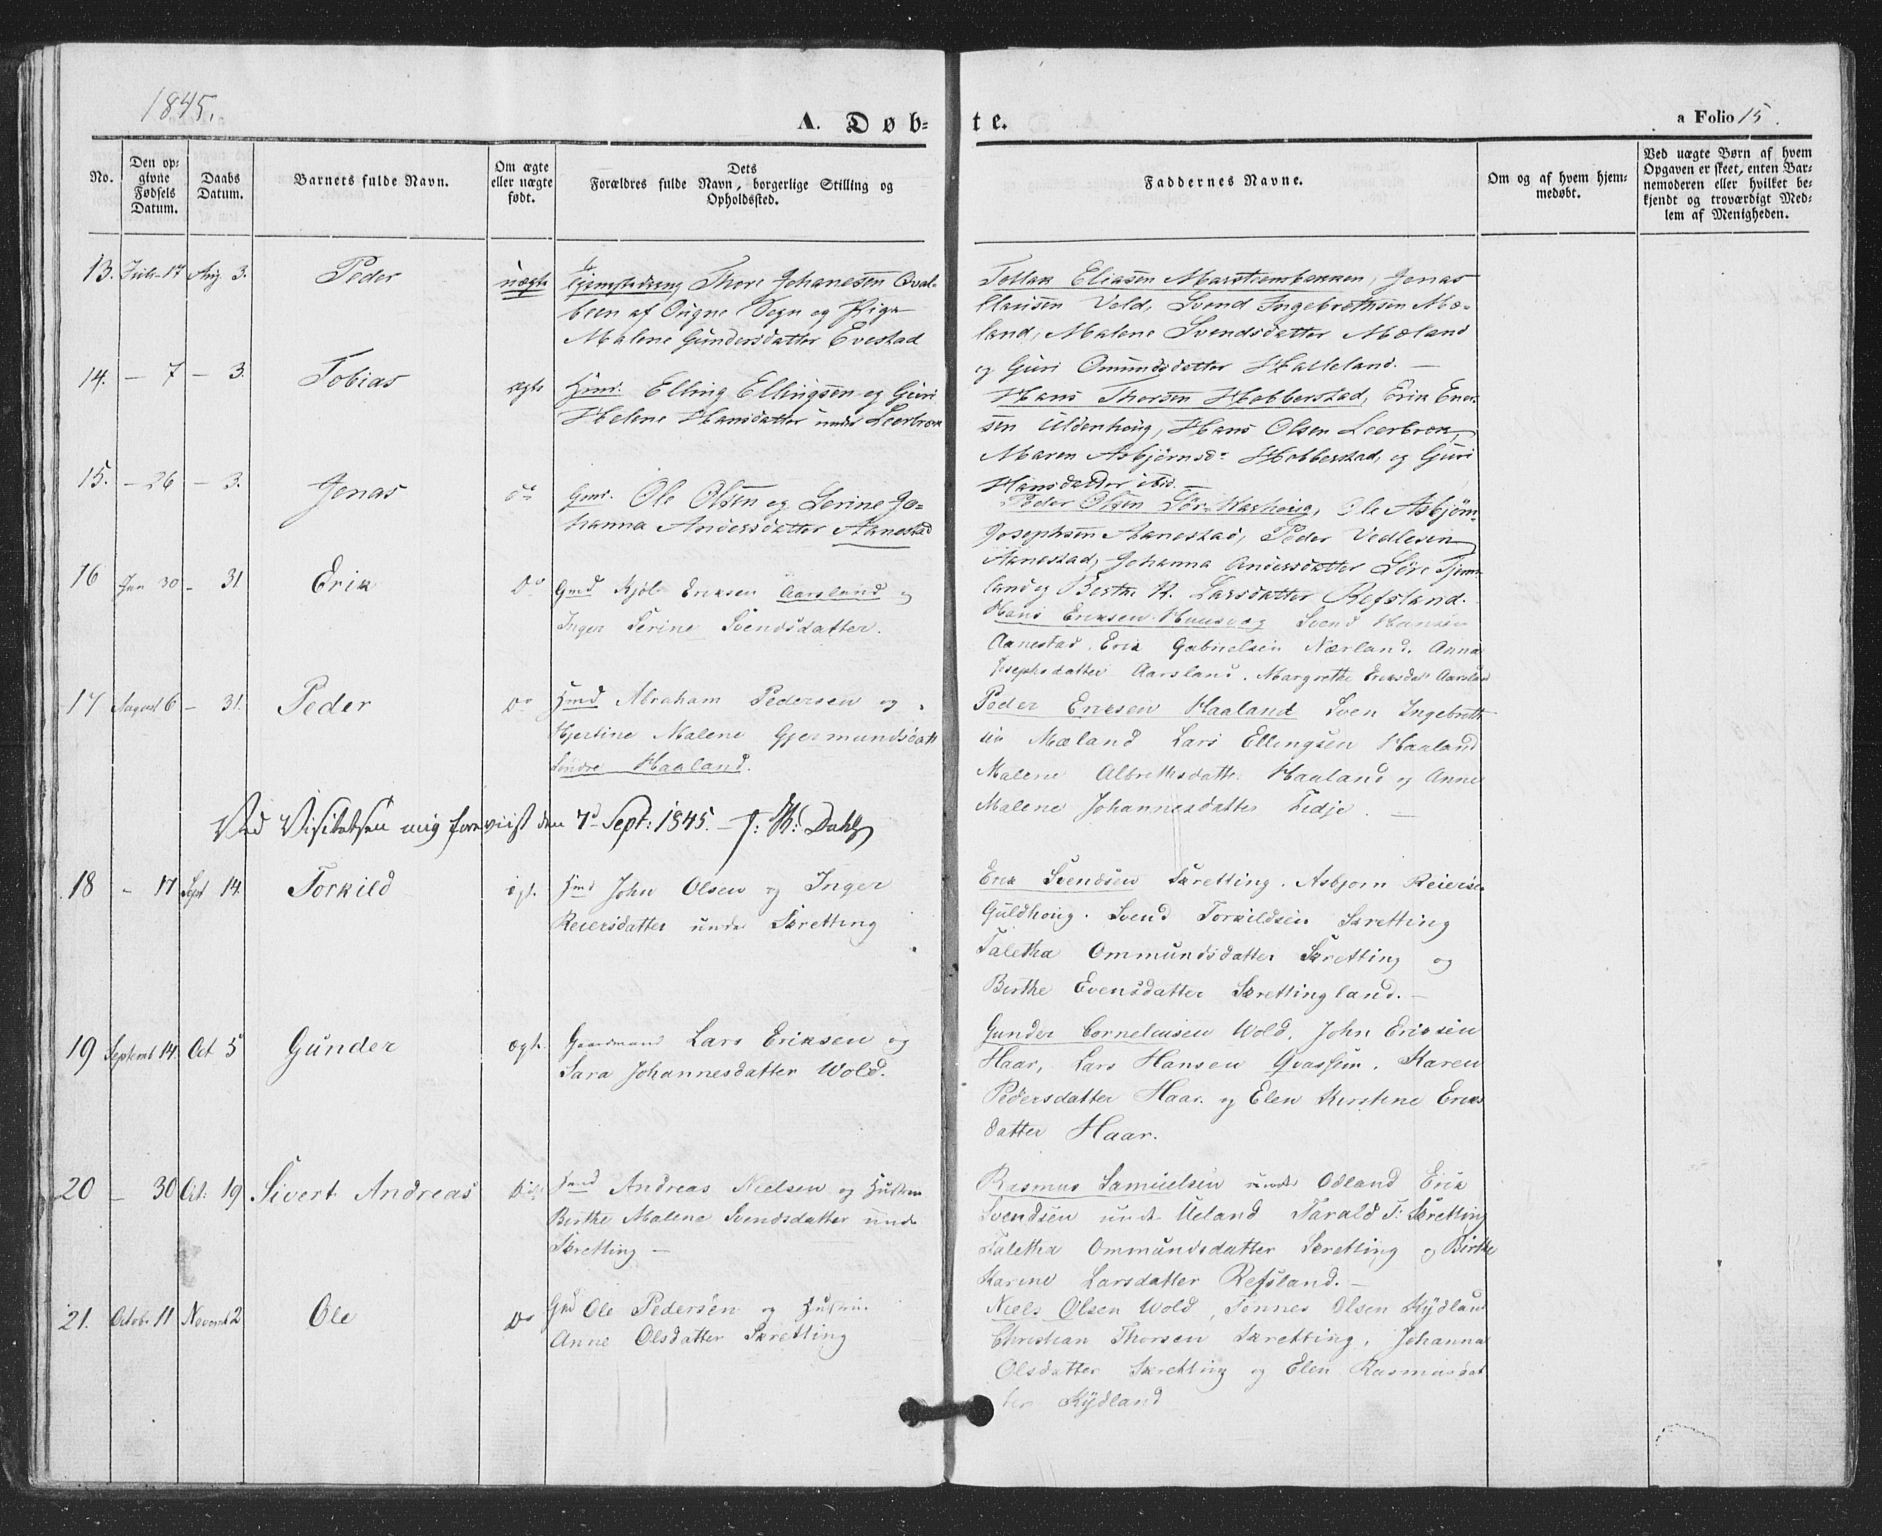 1845.
A. Døbte.
a Folio 15.
No.
Den opgivne Fødsels Datum.
Daabs Datum.
Barnets fulde Navn.
Om ægte eller uægte født.
Dets Forældres fulde Navn, borgerlige Stilling og Opholdssted.
Faddernes Navne.
Om og af hvem hjemmedøbt.
Ved uægte Børn af hvem Opgaven er skeet, enten Barnemoderen eller hvilket bekjendt og troværdigt Medlem af Menigheden.
13. Juli 17 Aug 3. Peder uægte
Thore Johanesen Qval-
been af Ougne Sogn og Pige
Malene Gundersdatter Evestad
Tollak Eliasen Jonas
Hansen Veld, Svend Ingebrethsen Mæ-
land, Malene Svendsdatter Mæland
og Guri Omundsdatter Halleland. —
14. — 7 — 3. Tobias ægte
Hmd. Elling Ellingsen og Guri
Helene Hansdatter under Leerbrek
Hans Thorsen Hobberstad, Erik Ener-
sen Uldenhoug, Hans Olsen Leerbrek,
Maren Asbjørnsd. Hobberstad, og Guri
Hansdatter ibid.
15. — 26 — 3. Jonas do
Gmd. Ole Olsen og Serine Jo-
hanna Andersdatter Aanestad
Peder Olsen Ole Asbjørn
Josephsen Aanestad, Peder Vedlesen
Aanestad, Johanna Andersdatter Søre
land og Berthe K. Larsdatter Refsland.
16 Jun 30 — 31 Erik Do
Gmd Kjøl Eriksen Aarsland og
Inger Serine Svendsdatter.
Hans Eriksen Svend Hansen
Aanestad, Erik Gabrielsen Nærland, Anna
Josephsdatter Aarsland. Margrethe Eriksdat Aarsland
17 August 6 — 31. Peder Do
Hmd Abraham Pedersen og
Hjertine Malene Gjermundsdatt
Søndre Haaland.
Peder Eriksen Haaland Sven Ingebreth-
sen Mæland Lars Ellingsen Haaland
Malene Albrethsdatte Haaland og Anne
Malene Johannesdatter Tedje. —
Ved Visitatsen mig foreviist den 7d Sept: 1845. — J: Dahl
18 — 17 Sept 14. Torkild ægt.
Hmd John Olsen og Inger
Reiersdatter under Skretting
Erik Svendsen Skretting. Asbjørn Reiersen
Guldhoug. Svend Torkildsen Skretting
Taletha Ommundsdatter Skretting og
Birthe Evensdatter Skrettingland. —
19 Septembr 14. Oct 5 Gunder ægte
Gaardmand Lars Eriksen og
Sara Johannesdatter Wold.
Gunder Corneliusen Wold, John Eriksen
Haar, Lars Hansen Qvassem. Karen
Pedersdatter Haar. og Elen Kirstine Eriks
datter Haar.
20 — 30 Oct: 19 Sivert Andreas
Hmd Andreas Nielsen og Hustru
Birthe Malene Svendsdatter unde
Skretting —
Rasmus Samuelsen under Odland Erik
Svendsen under Ueland Tarald T: Skretting
Taletha Ommundsdatter Skretting og Birthe
Karine Larsdatter Refsland. —
21. Octob. 11 Novemb 2 Ole Do
Gmd Ole Pedersen og Hustru
Anne Olsdatter Skretting
Niels Olsen Wold, Tønnes Olsen Kydland
Christian Thorsen Skretting, Johanna
Olsdatter Skretting og Elen Rasmusdat
ter Kydland